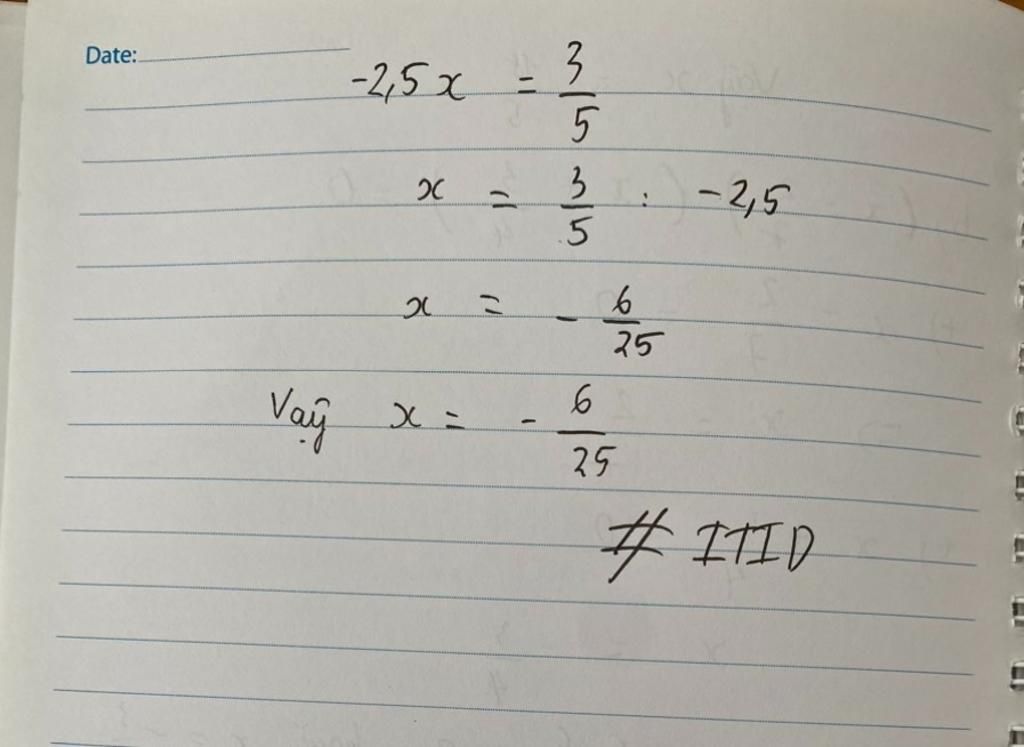 Date:
-2,5x = 3/5
x = 3/5 : -2,5
x = - 6/25
Vaỹ x = - 6/25
# ITID